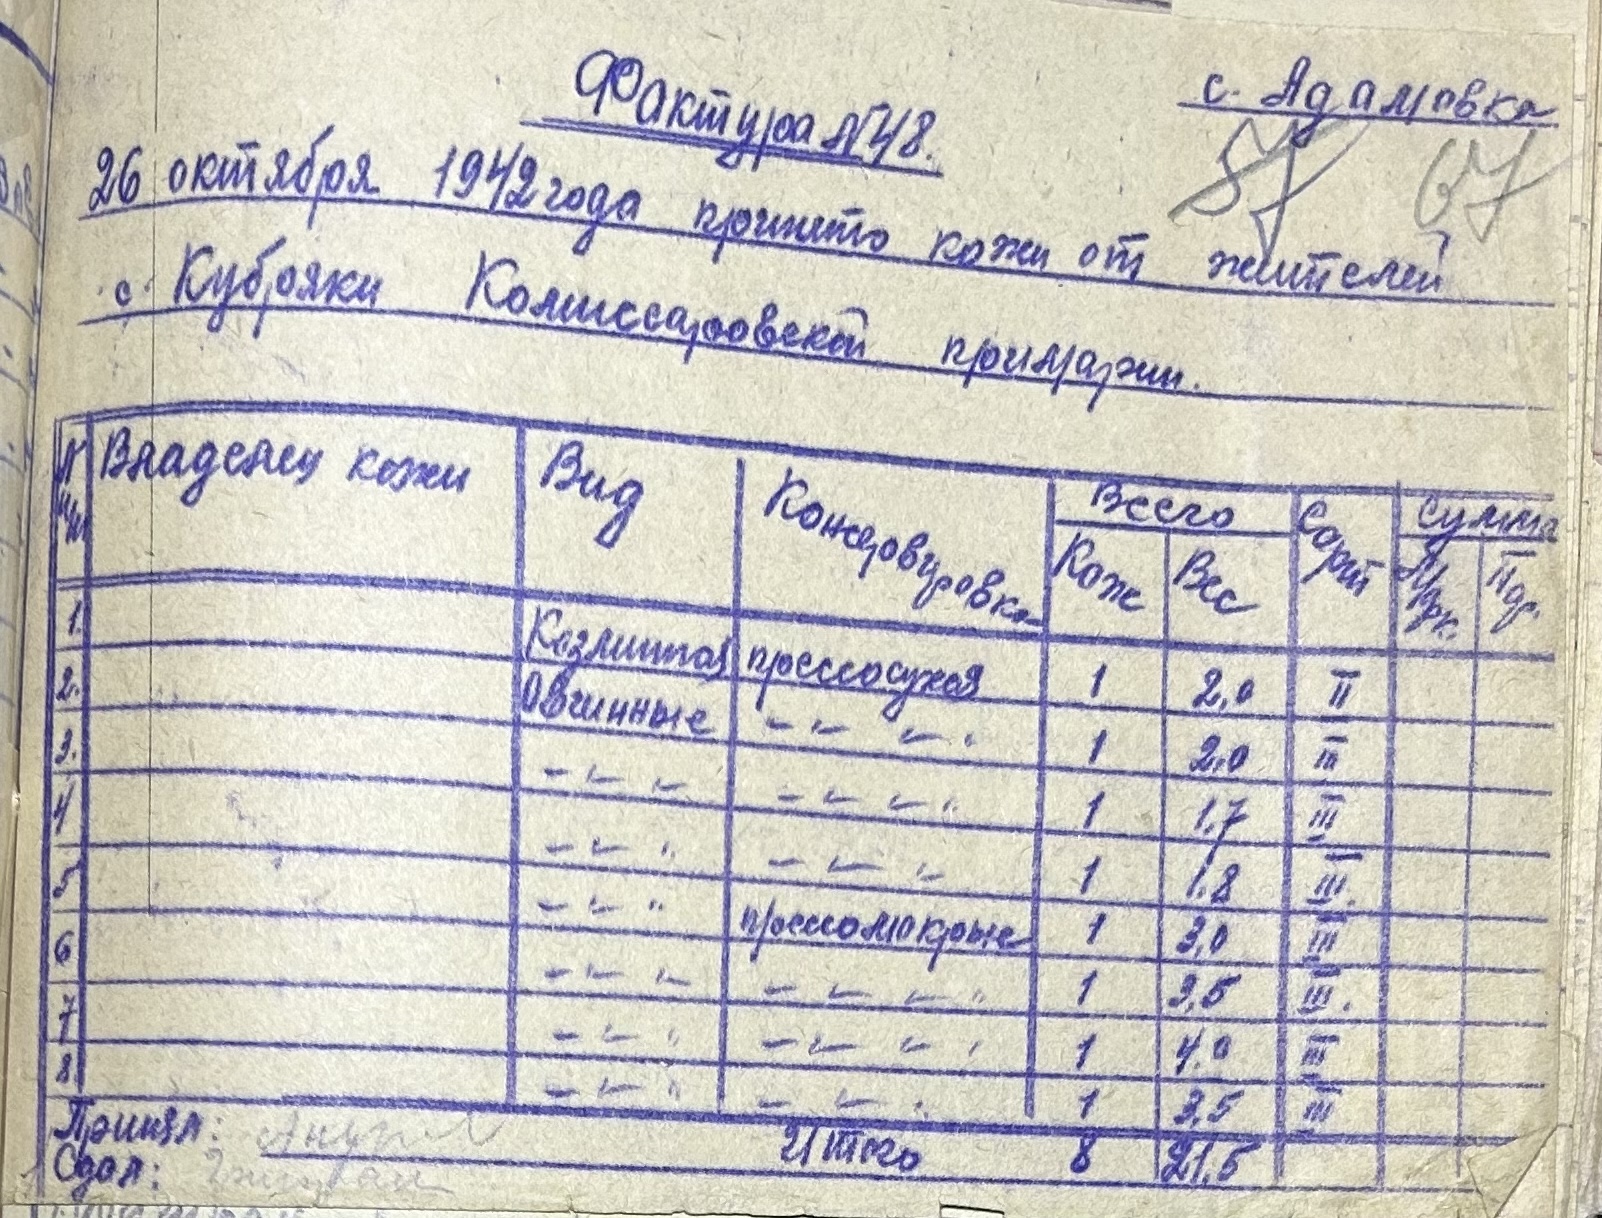 с. Адамовка
Фактура № 48.
57 67
26 октября 1942 года принято кожи от жителей
с. Кубряки Комиссаровской примарии.
№ п/п Владелец кожи Вид Консервировка Всего Сорт Сумма
Кож Вес Мрк. Пф.
1. Козлиная прессосухая 1 2,0 II
2. Овчинные -"- -"- 1 2,0 III
3. -"- -"- 1 1,7 III
4 -"- -"- 1 1,8 III.
5 -"- прессомокрые 1 3,0 III
6 -"- -"- 1 3,5 III.
7 -"- -"- 1 4,0 III
8. -"- -"- 1 3,5 III
Принял: Итого 8 21,5
Сдал: